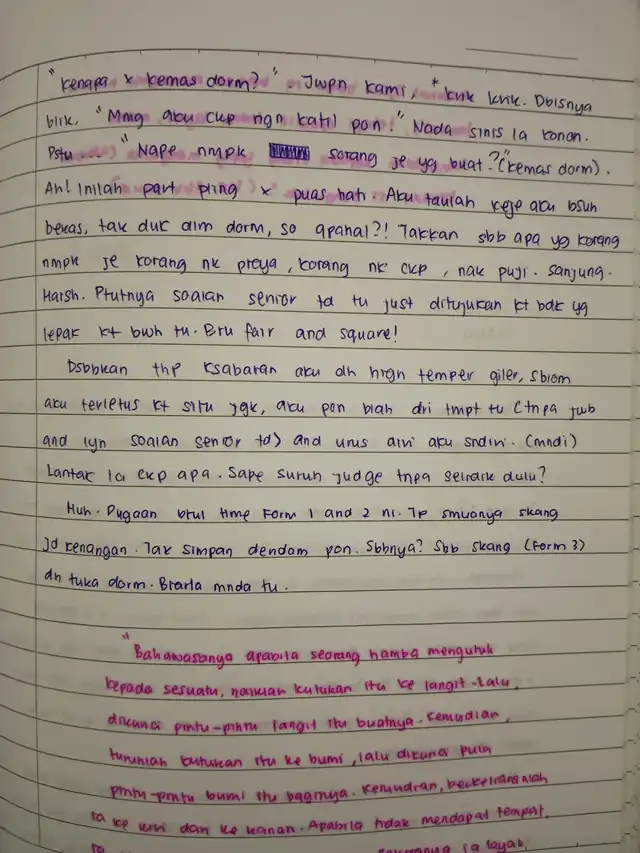 "Kenapa x kemas dorm?". Jwpn kami, *krik krik. Dbisnya
blik. "Mmg aku ckp ngn katil pon!" Nada sinis la konon.
Pstu.... "Nape nmpk sorang je yg buat?"(kemas dorm).
Ah! Inilah part pling x puas hati. Aku taulah keje aku bsuh
bekas, tak duk dlm dorm, so apahal?! Takkan sbb apa yg korang
nmpk je korang nk preya, korang nk ckp, nak puji. Sanjung.
Harsh. Ptutnya soalan senior td tu just ditujukan kt bdk yg
lepak kt bwh tu. Bru fair and square!
Dsbbkan thp ksabaran aku dh hign temper giler, sblom
aku terletus kt situ jgk, aku pon blah dri tmpt tu (tnpa jwb
and lyn soalan senior td) and urus diri aku sndiri. (mndi)
Lantak la ckp apa. Sape suruh judge tnpa selidik dulu?
Huh. Dugaan btul time Form 1 and 2 ni. Tp smuanya skang
jd kenangan. Tak simpan dendam pon. Sbbnya? Sbb skang (Form 3)
dh tuka dorm. Biarla mnda tu.
"Bahawasanya apabila seorang hamba mengutuk
kepada sesuatu, naiklah kutukan itu ke langit. Lalu,
dikunci pintu-pintu langit itu buatnya. Kemudian,
turunlah kutukan itu ke bumi, lalu dikunci pula
pintu-pintu bumi itu baginya. Kemudian, berkeliaranlah
ia ke kiri dan ke kanan. Apabila tidak mendapat tempat,
ia layak,